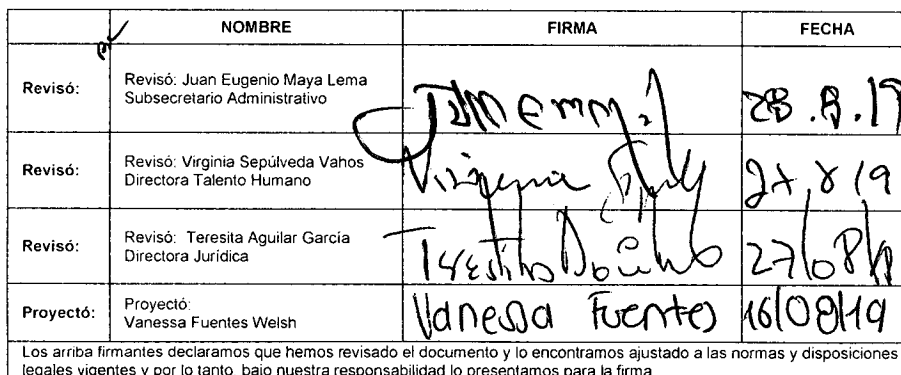 NOMBRE FIRMA FECHA
Revisó: Revisó: Juan Eugenio Maya Lema
Subsecretario Administrativo
28.8.19
Revisó: Revisó: Virginia Sepúlveda Vahos
Directora Talento Humano
Virginia
Revisó: Revisó: Teresita Aguilar García
Directora Jurídica
27/08/19
Proyectó: Proyectó:
Vanessa Fuentes Welsh
Vanessa Fuentes 16/08/19
Los arriba firmantes declaramos que hemos revisado el documento y lo encontramos ajustado a las normas y disposiciones
legales vigentes y por lo tanto, bajo nuestra responsabilidad lo presentamos para la firma